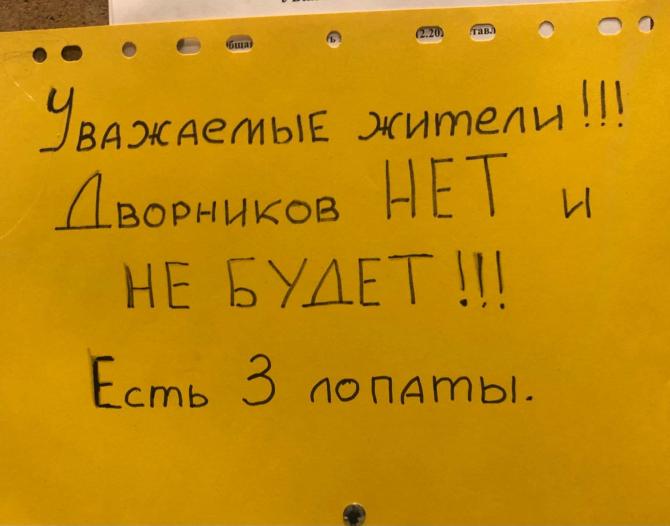 Уважаемые жители!!!
Дворников НЕТ и
НЕ БУДЕТ!!!
Есть 3 лопаты.